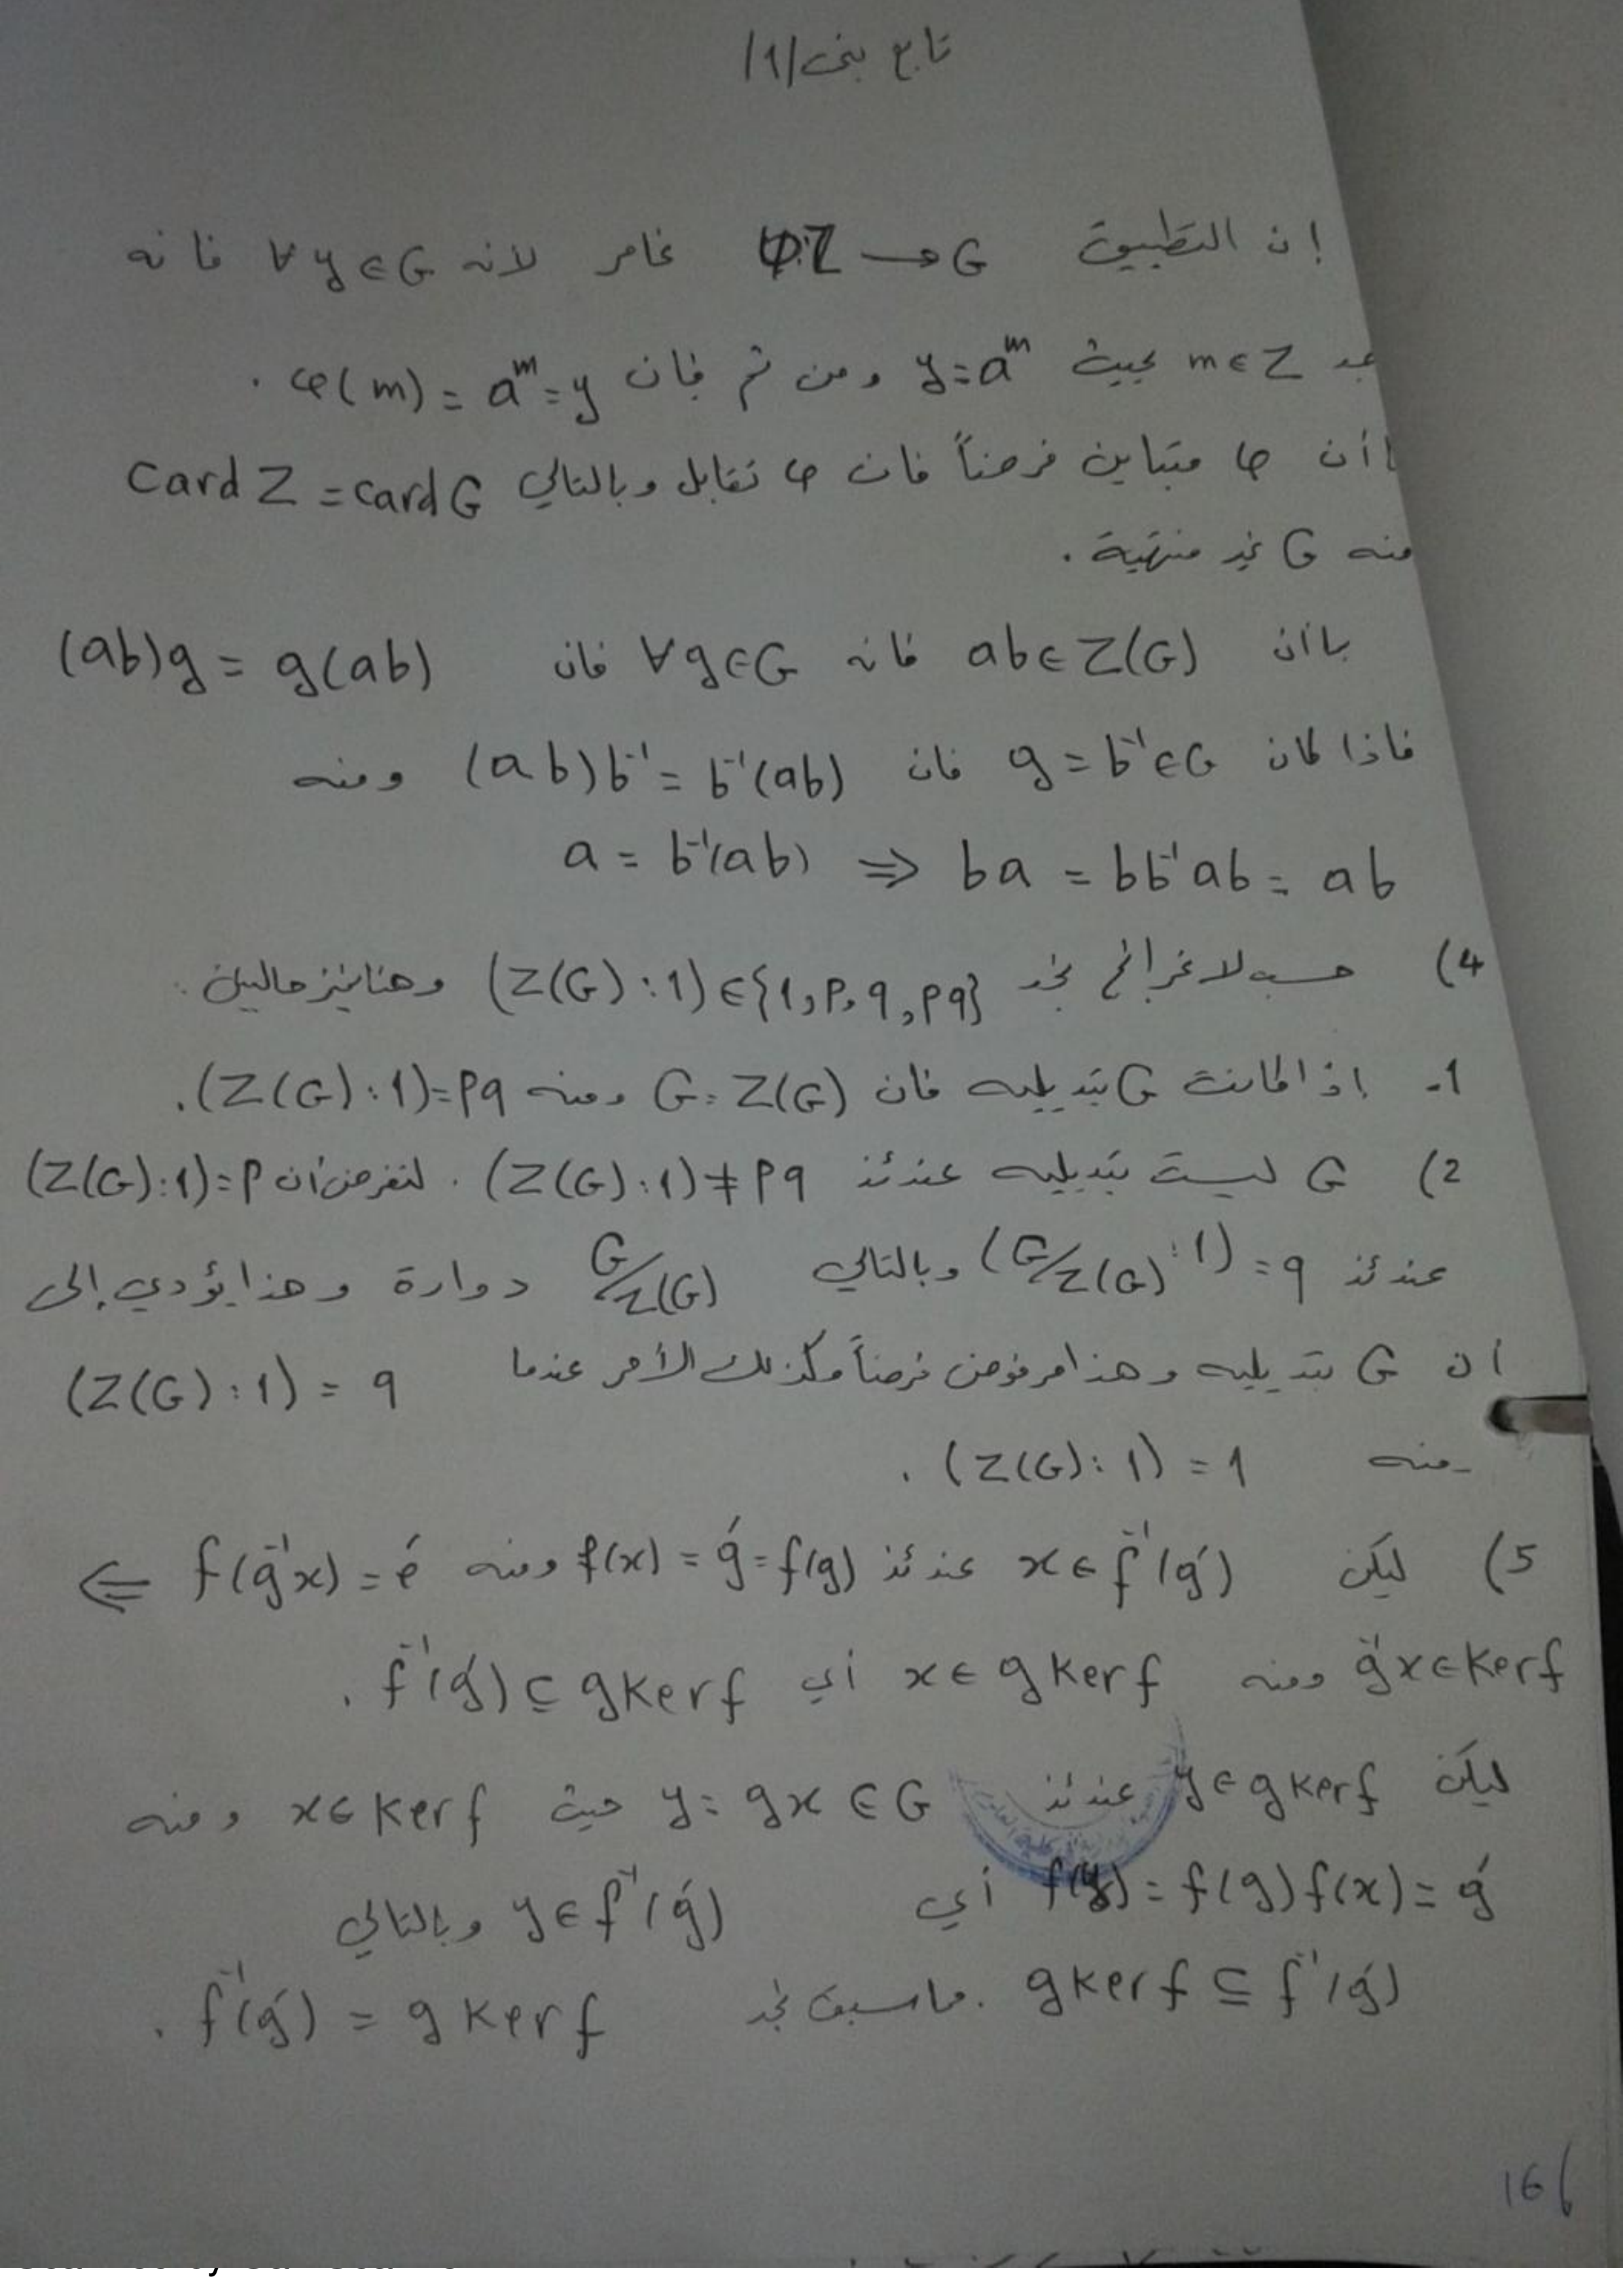 تابع بنى /1/
إن التطبيق φ:Z → G غامر لأنه ∀ y ∈ G فإنه
m ∈ Z بحيث y = a^m ومن ثم فإن φ(m) = a^m = y .
أن φ متباين فرضاً فإن φ تقابل وبالتالي card Z = card G
منه G غير منتهية .
بما أن ab ∈ Z(G) فإنه ∀ g ∈ G فإن (ab)g = g(ab)
فإذا كان g = b⁻¹ ∈ G فإن (ab)b⁻¹ = b⁻¹(ab) ومنه
a = b⁻¹(ab) ⇒ ba = bb⁻¹ab = ab
4) حسب لاغرانج نجد (Z(G):1) ∈ {1, p, q, pq} وهنا نميز حالتين :
1- إذا كانت G تبديليه فإن G = Z(G) ومنه (Z(G):1) = pq .
2) G ليست تبديليه عندئذ (Z(G):1) ≠ pq . لنفرض أن (Z(G):1) = p
عندئذ (G/Z(G):1) = q وبالتالي G/Z(G) دوارة وهذا يؤدي إلى
أن G تبديليه وهذا مرفوض فرضاً وكذلك الأمر عندما (Z(G):1) = q
ومنه (Z(G):1) = 1 .
5) ليكن x ∈ f⁻¹(g′) عندئذ f(x) = g′ = f(g) ومنه f(g⁻¹x) = e′ ⇐
g⁻¹x ∈ Ker f ومنه x ∈ g Ker f أي f⁻¹(g′) ⊆ g Ker f .
ليكن y ∈ g Ker f عندئذ y = gx ∈ G حيث x ∈ Ker f ومنه
f(y) = f(g) f(x) = g′ أي y ∈ f⁻¹(g′) وبالتالي
g Ker f ⊆ f⁻¹(g′) . مما سبق نجد f⁻¹(g′) = g Ker f .